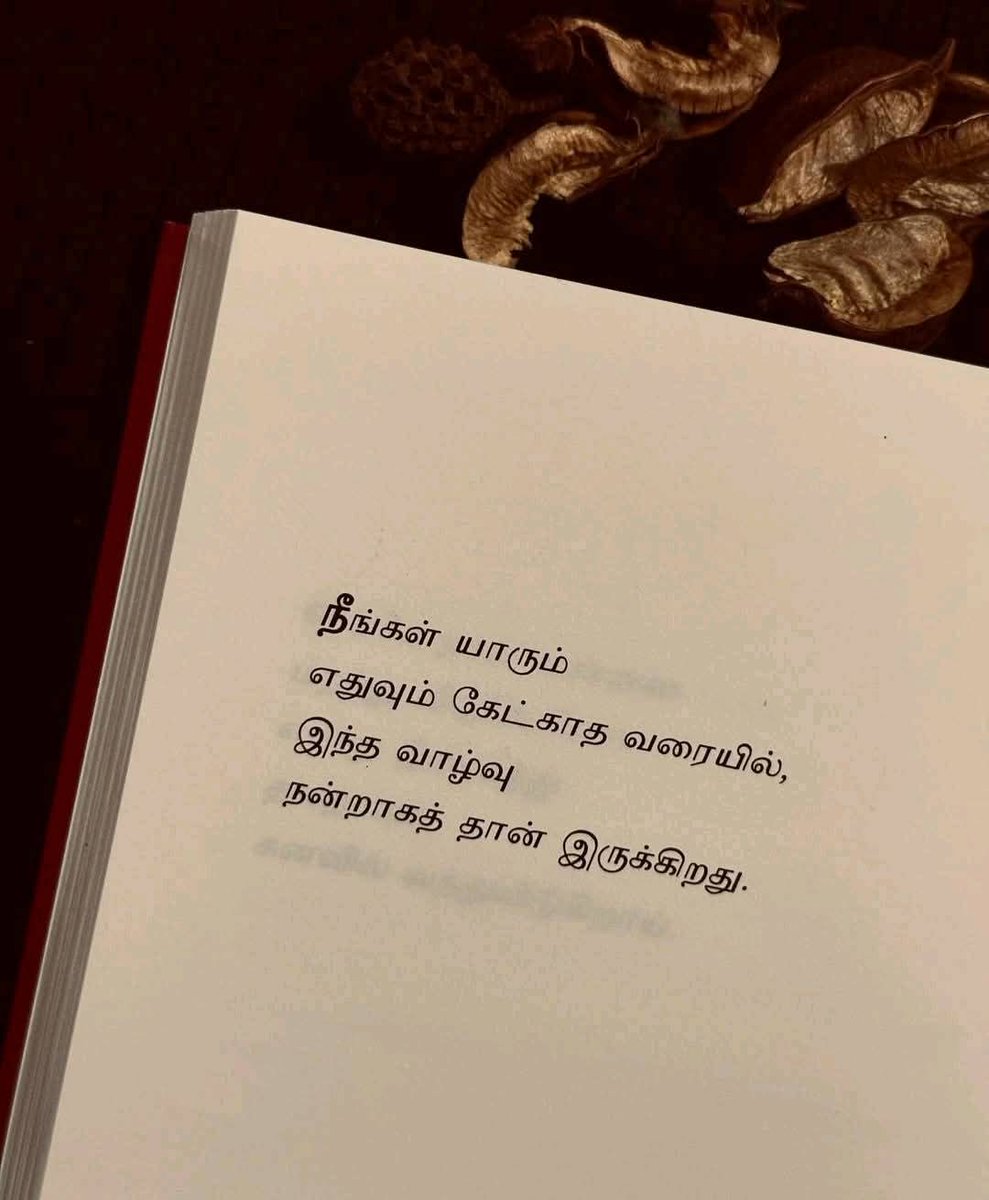 நீங்கள் யாரும்
எதுவும் கேட்காத வரையில்,
இந்த வாழ்வு
நன்றாகத் தான் இருக்கிறது.